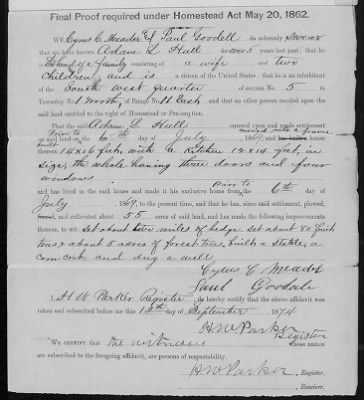 Final Proof required under Homestead Act May 20, 1862.
WE, Cyrus C. Meader & Paul Goodell do solemnly Swear
that we have known Adam L. Hull for over 5 years last past; that he is
Head of a family consisting of a wife and two
children, and is a citizen of the United States; that he is an inhabitant
of the South west quarter of section No. 5 in
Township No. 1 North, of Range No. 11 East and that no other person resided upon the said
land entitled to the right of Homestead or Pre-emption.
That the said Adam L. Hull entered upon and made settlement
Prior to moved into a frame
on said land on the 6th day of July 1869, and
built
thereon 14x16 feet, with a Kitchen 12x14 feet, in
size, the whole having three doors and four
windows
and has lived in the said house and made it his exclusive home from the 6th day of
Prior to
July, 1869, to the present time, and that he has, since said settlement, plowed,
and cultivated about 55 acres of said land, and has made the following improvements
thereon, to wit: set about two miles of hedge set about 80 fruit
trees & about 5 acres of forest trees, built a stable, a
corn crib and dug a well
Cyrus C Meader
Paul Goodale
I, H W Parker Register do hereby certify that the above affidavit was
taken and subscribed before me this day of September 1874
H W Parker
Register
WE CERTIFY that the witnesses whose names
are subscribed to the foregoing affidavit, are persons of respectability.
H W Parker, Register.
Receiver.